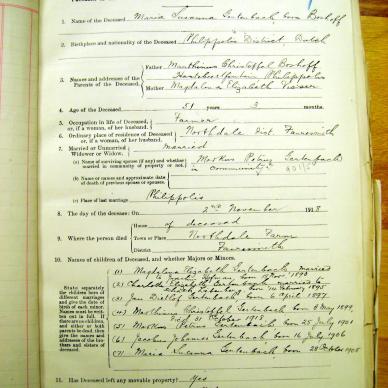 1. Name of the Deceased Maria Susanna Serlenbach born Boshoff
2. Birthplace and nationality of the Deceased Philippolis District Dutch
3. Names and addresses of the Parents of the Deceased.
Father Marthinus Christoffel Boshoff
Philippolis
Mother Magdalena Elizabeth Visser
4. Age of the Deceased 51 years 3 months
5. Occupation in life of Deceased, or, if a woman, of her husband. Farmer
6. Ordinary place of residence of Deceased or, if a woman, of her husband. Northdale Dist. Fauresmith
7. Married or Unmarried Widower or Widow. married
(a) Name of surviving spouse (if any) and whether married in community of property or not. Petrus Serlenbach
in Community
(b) Names and approximate date of death of previous spouses.
(c) Place of last marriage Philippolis
8. The day of the decease: On 2nd November 1918
9. Where the person died
House of deceased
Town or Place Northdale Farm
District Fauresmith
10. Names of children of Deceased, and whether Majors or Minors.
State separately the children born of different marriages and give the date of birth of each minor. Names must be written out in full. If there are no children, and either or both parents be dead, then give the names and addresses of the brothers and sisters of deceased.
(1) Magdalena Elizabeth Serlenbach married
born 1893
(2) Charlotte Elizabeth Serlenbach married to
born 14 February 1895
(3) Jan Serlenbach born 6 April 1897
(4) Marthinus Christoffel Serlenbach born 8 May 1899
October 1918
(5) Petrus Serlenbach born 25 July 1901
(6) Jacobus Johannes Serlenbach born 16 July 1906
(7) Maria Susanna Serlenbach born 28 October 1908
11. Has Deceased left any movable property? Yes